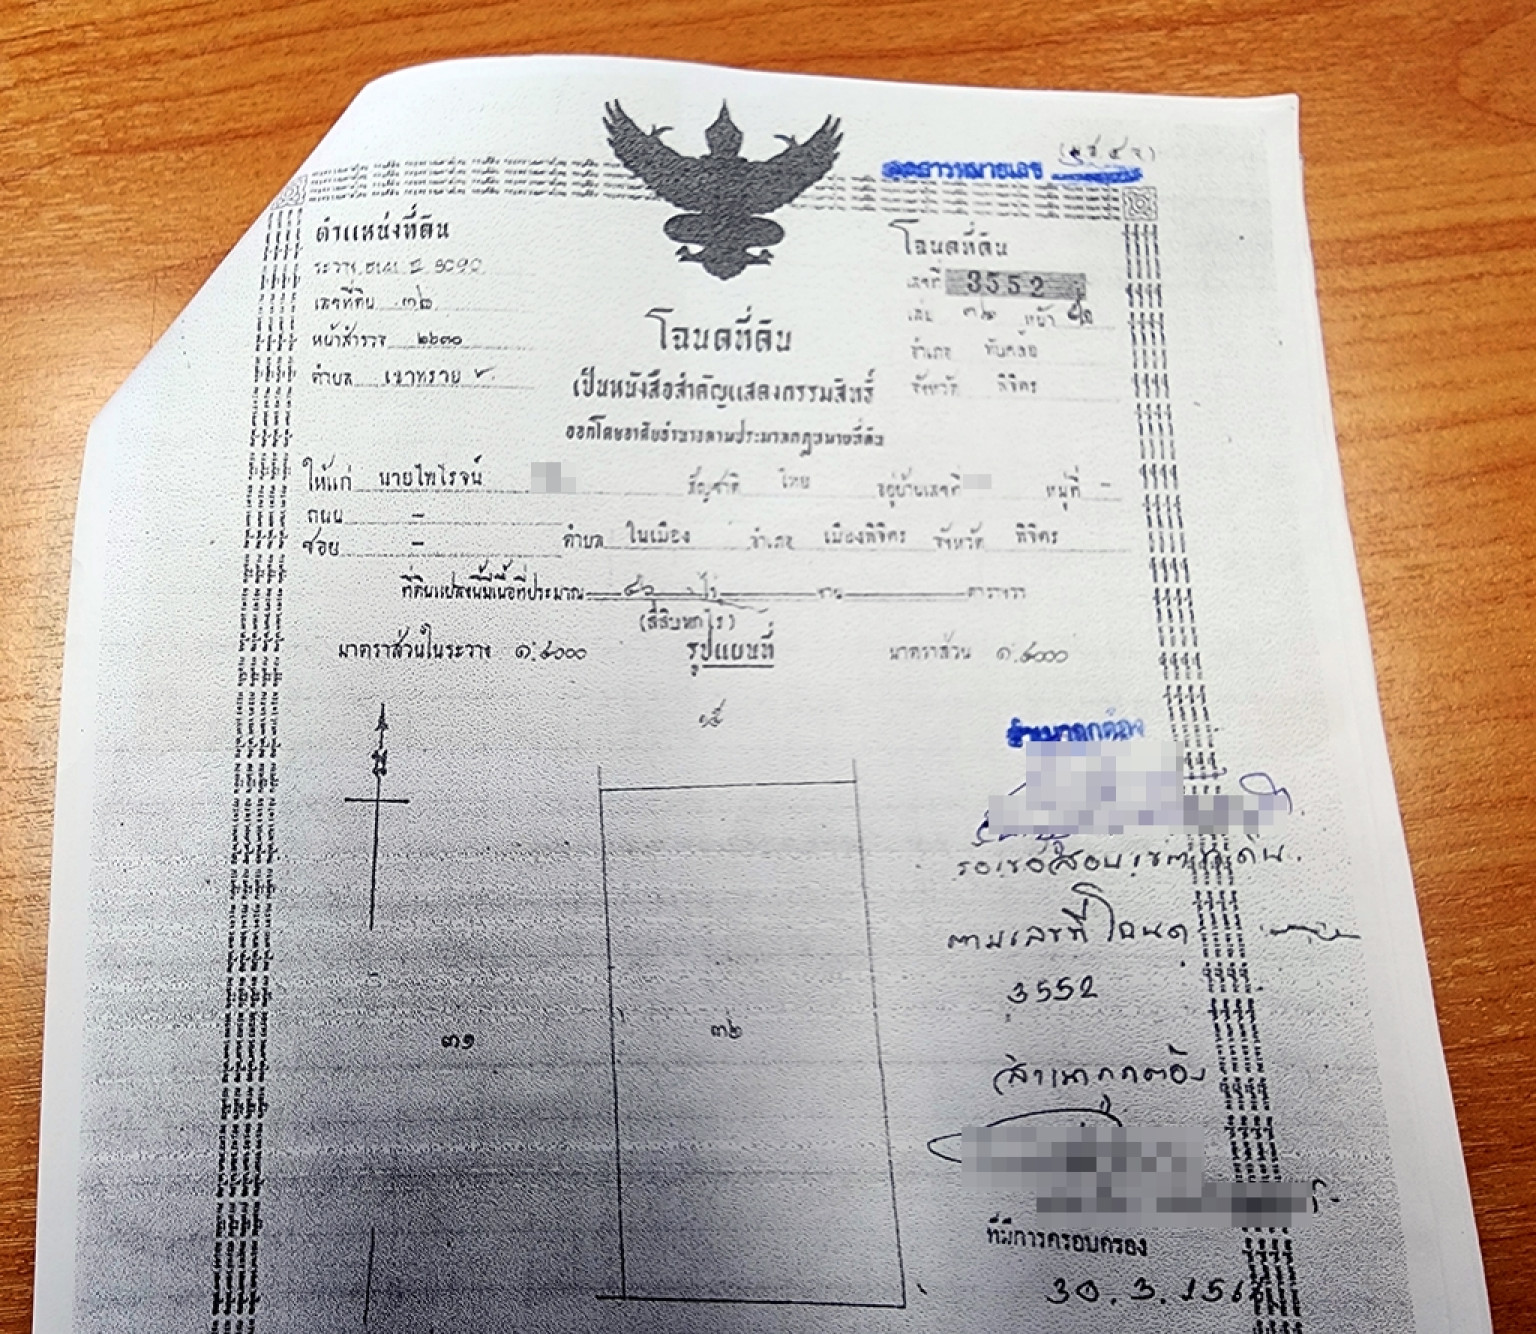 (๓๕๕๒)
เอกสารหมายเลข
ตำแหน่งที่ดิน
ระวาง
เลขที่ดิน ๓๒
หน้าสำรวจ ๒๖๓๐
ตำบล เขาทราย
โฉนดที่ดิน
เลขที่ 3552
เล่ม ๓๖ หน้า
อำเภอ ทับคล้อ
จังหวัด พิจิตร
โฉนดที่ดิน
เป็นหนังสือสำคัญแสดงกรรมสิทธิ์
ออกโดยอาศัยอำนาจตามประมวลกฎหมายที่ดิน
ให้แก่ นายไพโรจน์ สัญชาติ ไทย อยู่บ้านเลขที่ หมู่ที่ -
ถนน -
ซอย - ตำบล ในเมือง อำเภอ เมืองพิจิตร จังหวัด พิจิตร
ที่ดินแปลงนี้มีเนื้อที่ประมาณ ๔๖ ไร่ งาน ตารางวา
(สี่สิบหกไร่)
มาตราส่วนในระวาง ๑:๔๐๐๐ รูปแผนที่ มาตราส่วน ๑:๔๐๐๐
๑๕
น
สำเนาถูกต้อง
ตามเลขที่โฉนด
3552
๓๑
๓๒
สำเนาถูกต้อง
ที่มีการครอบครอง
30.3.